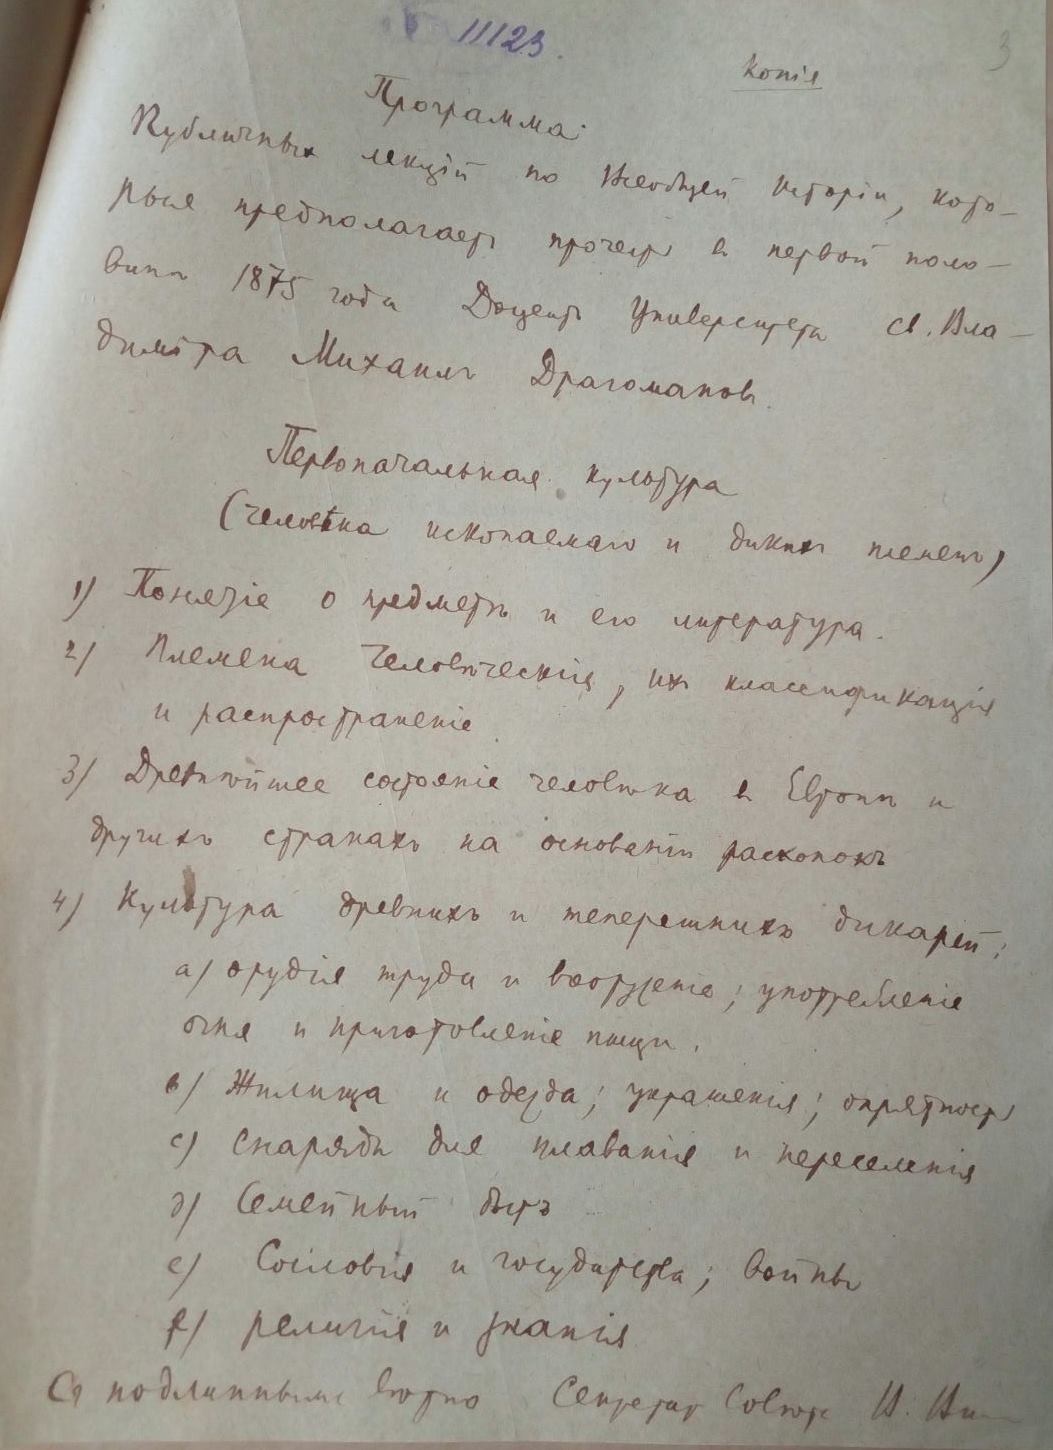 11123.
3
Копія
Программа:
Публичныхъ лекцій по Всеобщей Исторіи, кото-
рыя предполагаетъ прочесть въ первой поло-
винѣ 1875 года Доцентъ Университета Св. Вла-
диміра Михаилъ Драгомановъ.
Первоначальная культура
(человѣка ископаемаго и дикихъ племенъ)
1) Понятіе о предметѣ и его литература.
2) Племена человѣческія, ихъ классификація
и распространеніе
3) Древнѣйшее состояніе человѣка въ Европѣ и
другихъ странахъ на основаніи раскопокъ
4) Культура древнихъ и теперешнихъ дикарей:
a) орудія труда и вооруженіе; употребленіе
огня и приготовленіе пищи.
в) Жилища и одежда; украшенія; опрятность
c) Снаряды для плаванія и переселенія
д) Семейный бытъ
e) Сословія и государства; войны
f) религія и знанія
Съ подлиннымъ вѣрно Секретарь Совѣта И.